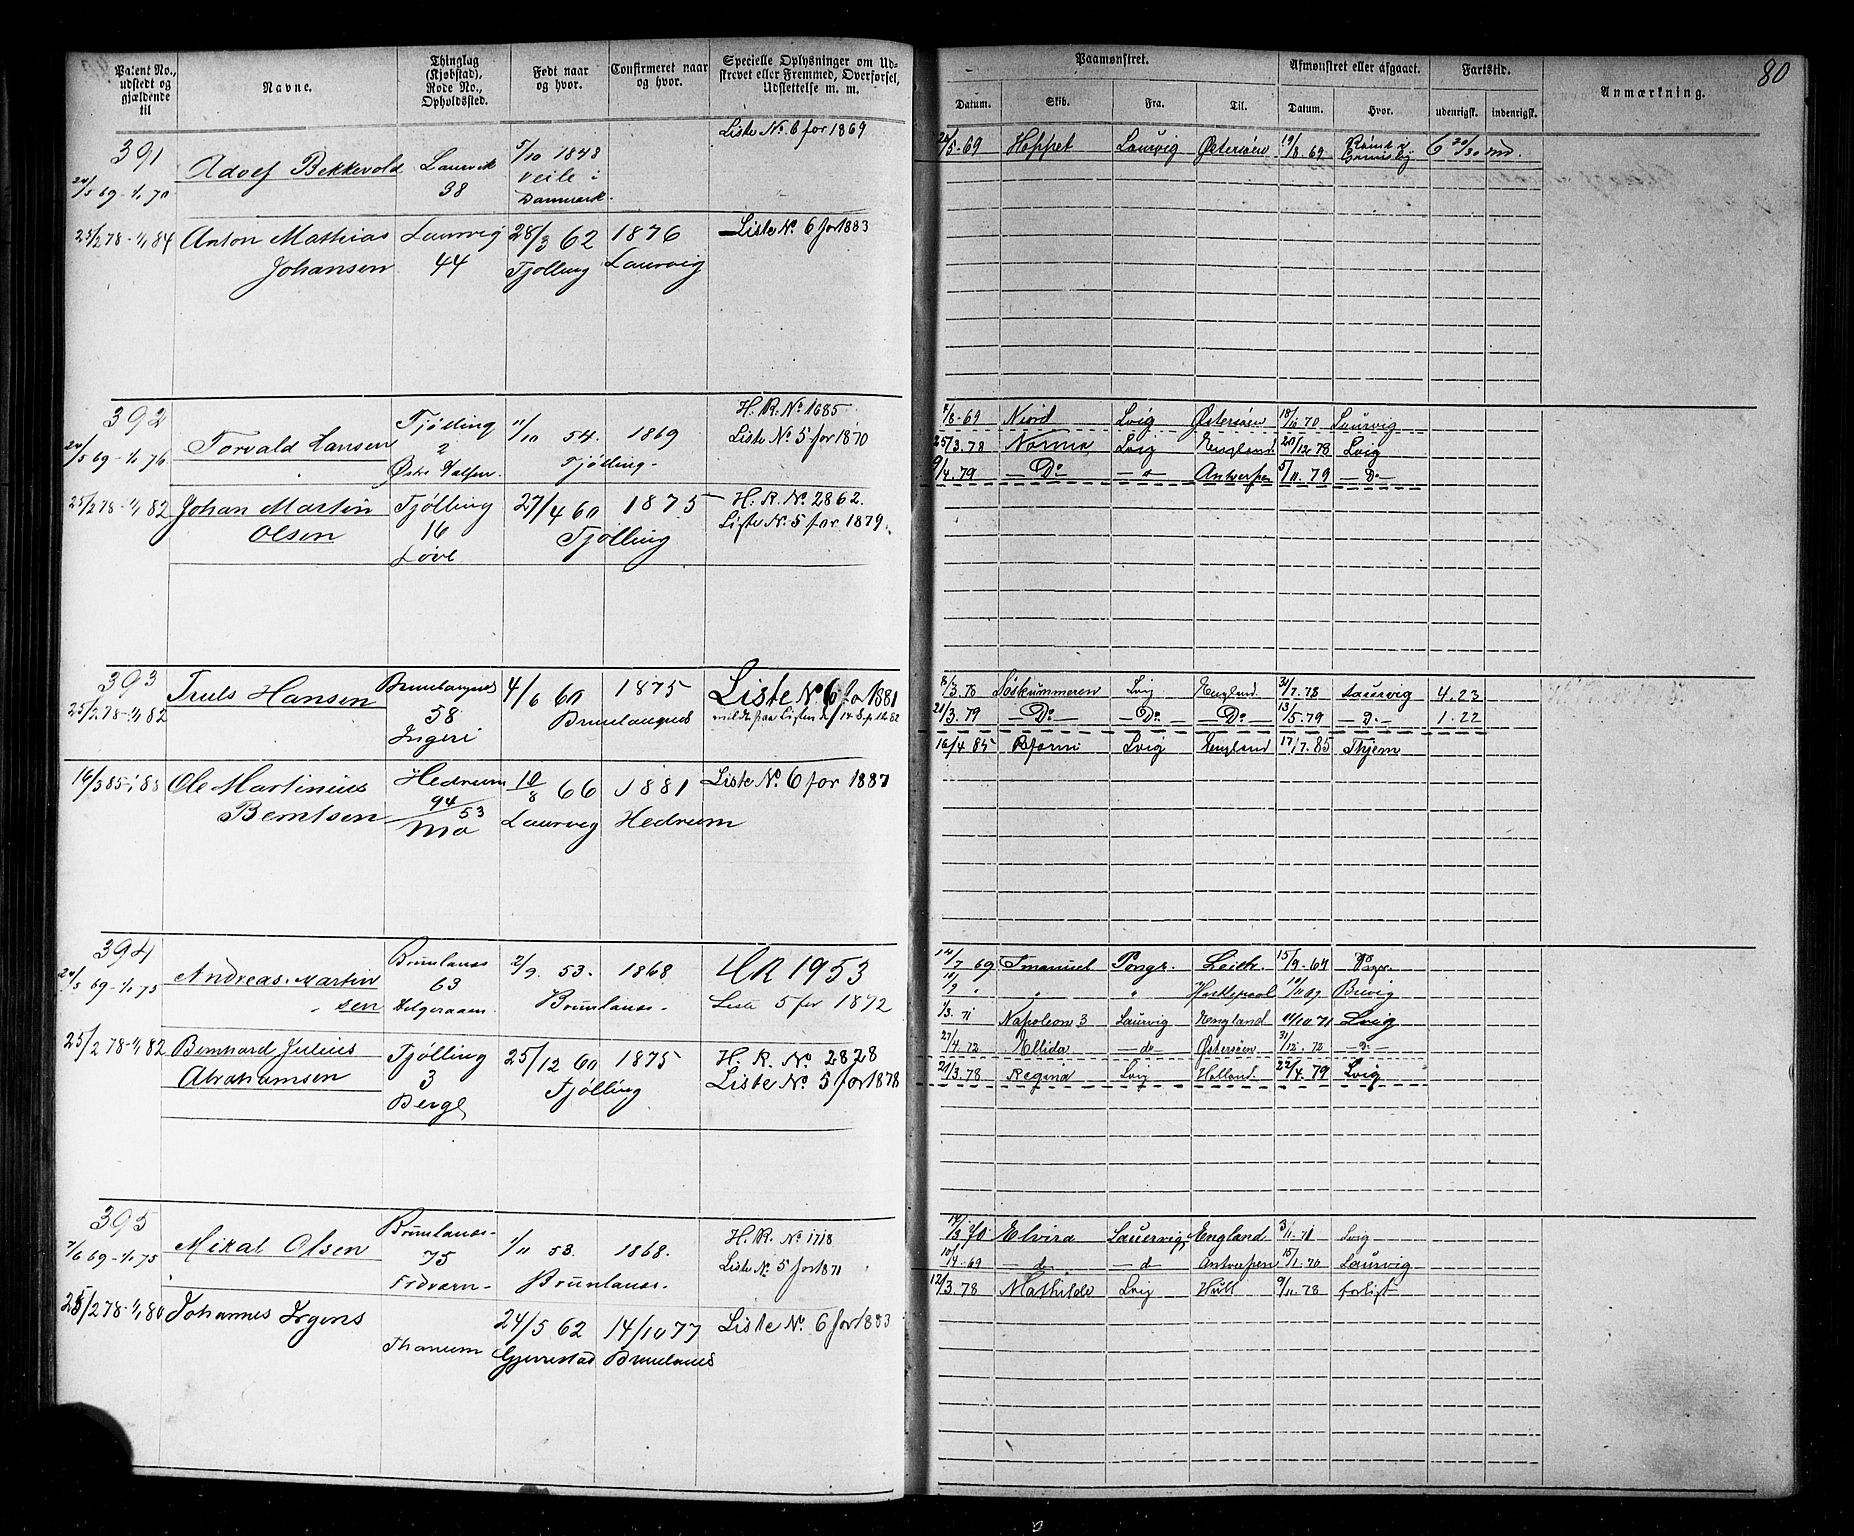 Patent No., udstedt og gjældende til
Navne.
Thinglag (Kjøbstad), Rode No., Opholdssted.
Født naar og hvor.
Confirmeret naar og hvor.
Specielle Oplysninger om Udskrevet eller Fremmed, Overførsel, Udslettelse m. m.
Paamønstret.
Datum. Skib. Fra. Til.
Afmønstret eller afgaaet.
Datum. Hvor.
Fartstid.
udenrigsk. indenrigsk.
Anmærkning.
80
391
24/5 69-1/1 70 Adolf Bekkevold Laurvik 38
5/10 1848 Veile i Danmark.
Liste No. 6 for 1869
24/5-69 Hoppet Laurvig Østersøen 19/8.69 Grimsby 6 20/30 md.
25/2 78-1/1 84 Anton Mathias Johansen Laurvig 44
28/3 62 Tjølling
1876 Laurvig
Liste No. 6 for 1883
392
24/5 69-1/1 76 Torvald Hansen Tjødling 2 Østre Halsen.
11/10 54. 1869 Tjødling.
H. R. No. 1685
Liste No. 5 for 1870
4/8-69 Niord Lvig Østersøen 18/11 70 Laurvig
25/3.78 Norma Lvig England 20/12.78 Lvig
9/4.79 Do. d Antwerpen 5/11.79 D.
25/2 78-1/1 82 Johan Martin Olsen Tjølling 16 Løve
27/4 60 1875 Tjølling
H. R. No. 2862.
Liste No. 5 for 1879.
393
25/2 78-1/1 82 Truls Hansen Brunlangnes 58 Ingeri
4/6 60 1875 Brunlangnes
Liste No. 6 for 1881
8/3.78 Søskummeren Lvig England 31/7.78 Laurvig 4.23
21/3.79 Do. Do. Do. 13/5.79 D. 1.22
16/4 85 Reform Lvig England 17/7.85 Thjem
16/3 85-1/1 88 Ole Martinius Berntsen Hedrum 94/53 Mo
10/8 66 Laurvig
1881 Hedrum
Liste No. 6 for 1887
394
24/5 69-1/1 75 Andreas Martinsen Brunlanes 63 Helgeraaen.
2/9. 53. 1868. Brunlanes.
HR 1953
Liste 5 for 1872
14/7 69 Imanuel Pongr. Leith. 15/9-69
Hartlepool Brevig
1/3. 71 Napoleon 3 Laurvig England 14/10 71 Lvig
27/4.72 Ellida d Østersøen 31/12.72 d
21/3.78 Regina Lvig Holland. 22/4.79 Lvig
25/2 78-1/1 82 Bernhard Julius Abrahamsen Tjølling 3 Berge
25/12 60 1875 Tjølling
H. R. No. 2828
Liste No. 5 for 1878
395
7/6 69-1/1 75 Mikal Olsen Brunlanes. 75 Fredværn
1/11 53. 1868. Brunlanes.
H. R. No 1718
Liste No. 5 for 1871
14/3 70 Elvira Lauervig England 3/11.71 Lvig
10/4-69 d d Antverpen 15/1.70 Laurvig
12/3.78 Mathilde Lvig Hull 9/11.78 forlist
25/2 78-1/1 80 Johannes Irgens Thanum
24/5 62 Gjerrestad
14/10 77 Brunlanes
Liste No. 6 for 1883